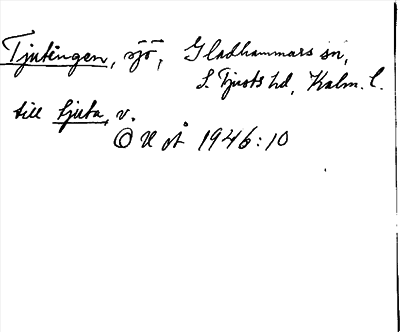 Tjutingen, sjö, Gladhammars sn,
S. Tjusts hd, Kalm. l.
till tjuta, v.
OUÅ 1946:10